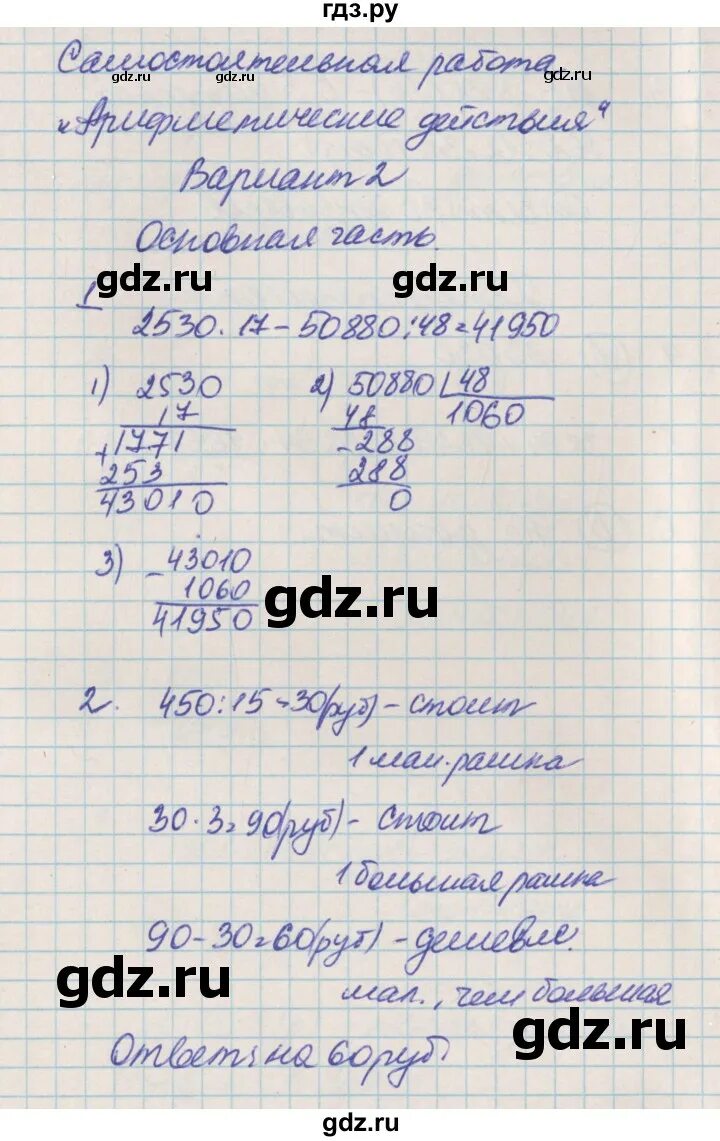 гдз.ру
Самостоятельная работа
gdz.ru gdz.ru gdz.ru gdz.ru
"Арифметические действия"
Вариант 2
Основная часть.
gdz.ru gdz.ru
1
2530 · 17 - 50880 : 48 = 41950
1) 2530 2) 50880 48
17 48 1060
+ 1771 - 288
253 288
43010 0
3) - 43010
1060
41950
gdz.ru
2. 450 : 15 = 30 (руб) - стоит
1 мал. рамка
30 · 3 = 90 (руб) - стоит
1 большая рамка
90 - 30 = 60 (руб) - дешевле.
gdz.ru
мал., чем большая
gdz.ru
Ответ: на 60 руб
гдз.ру